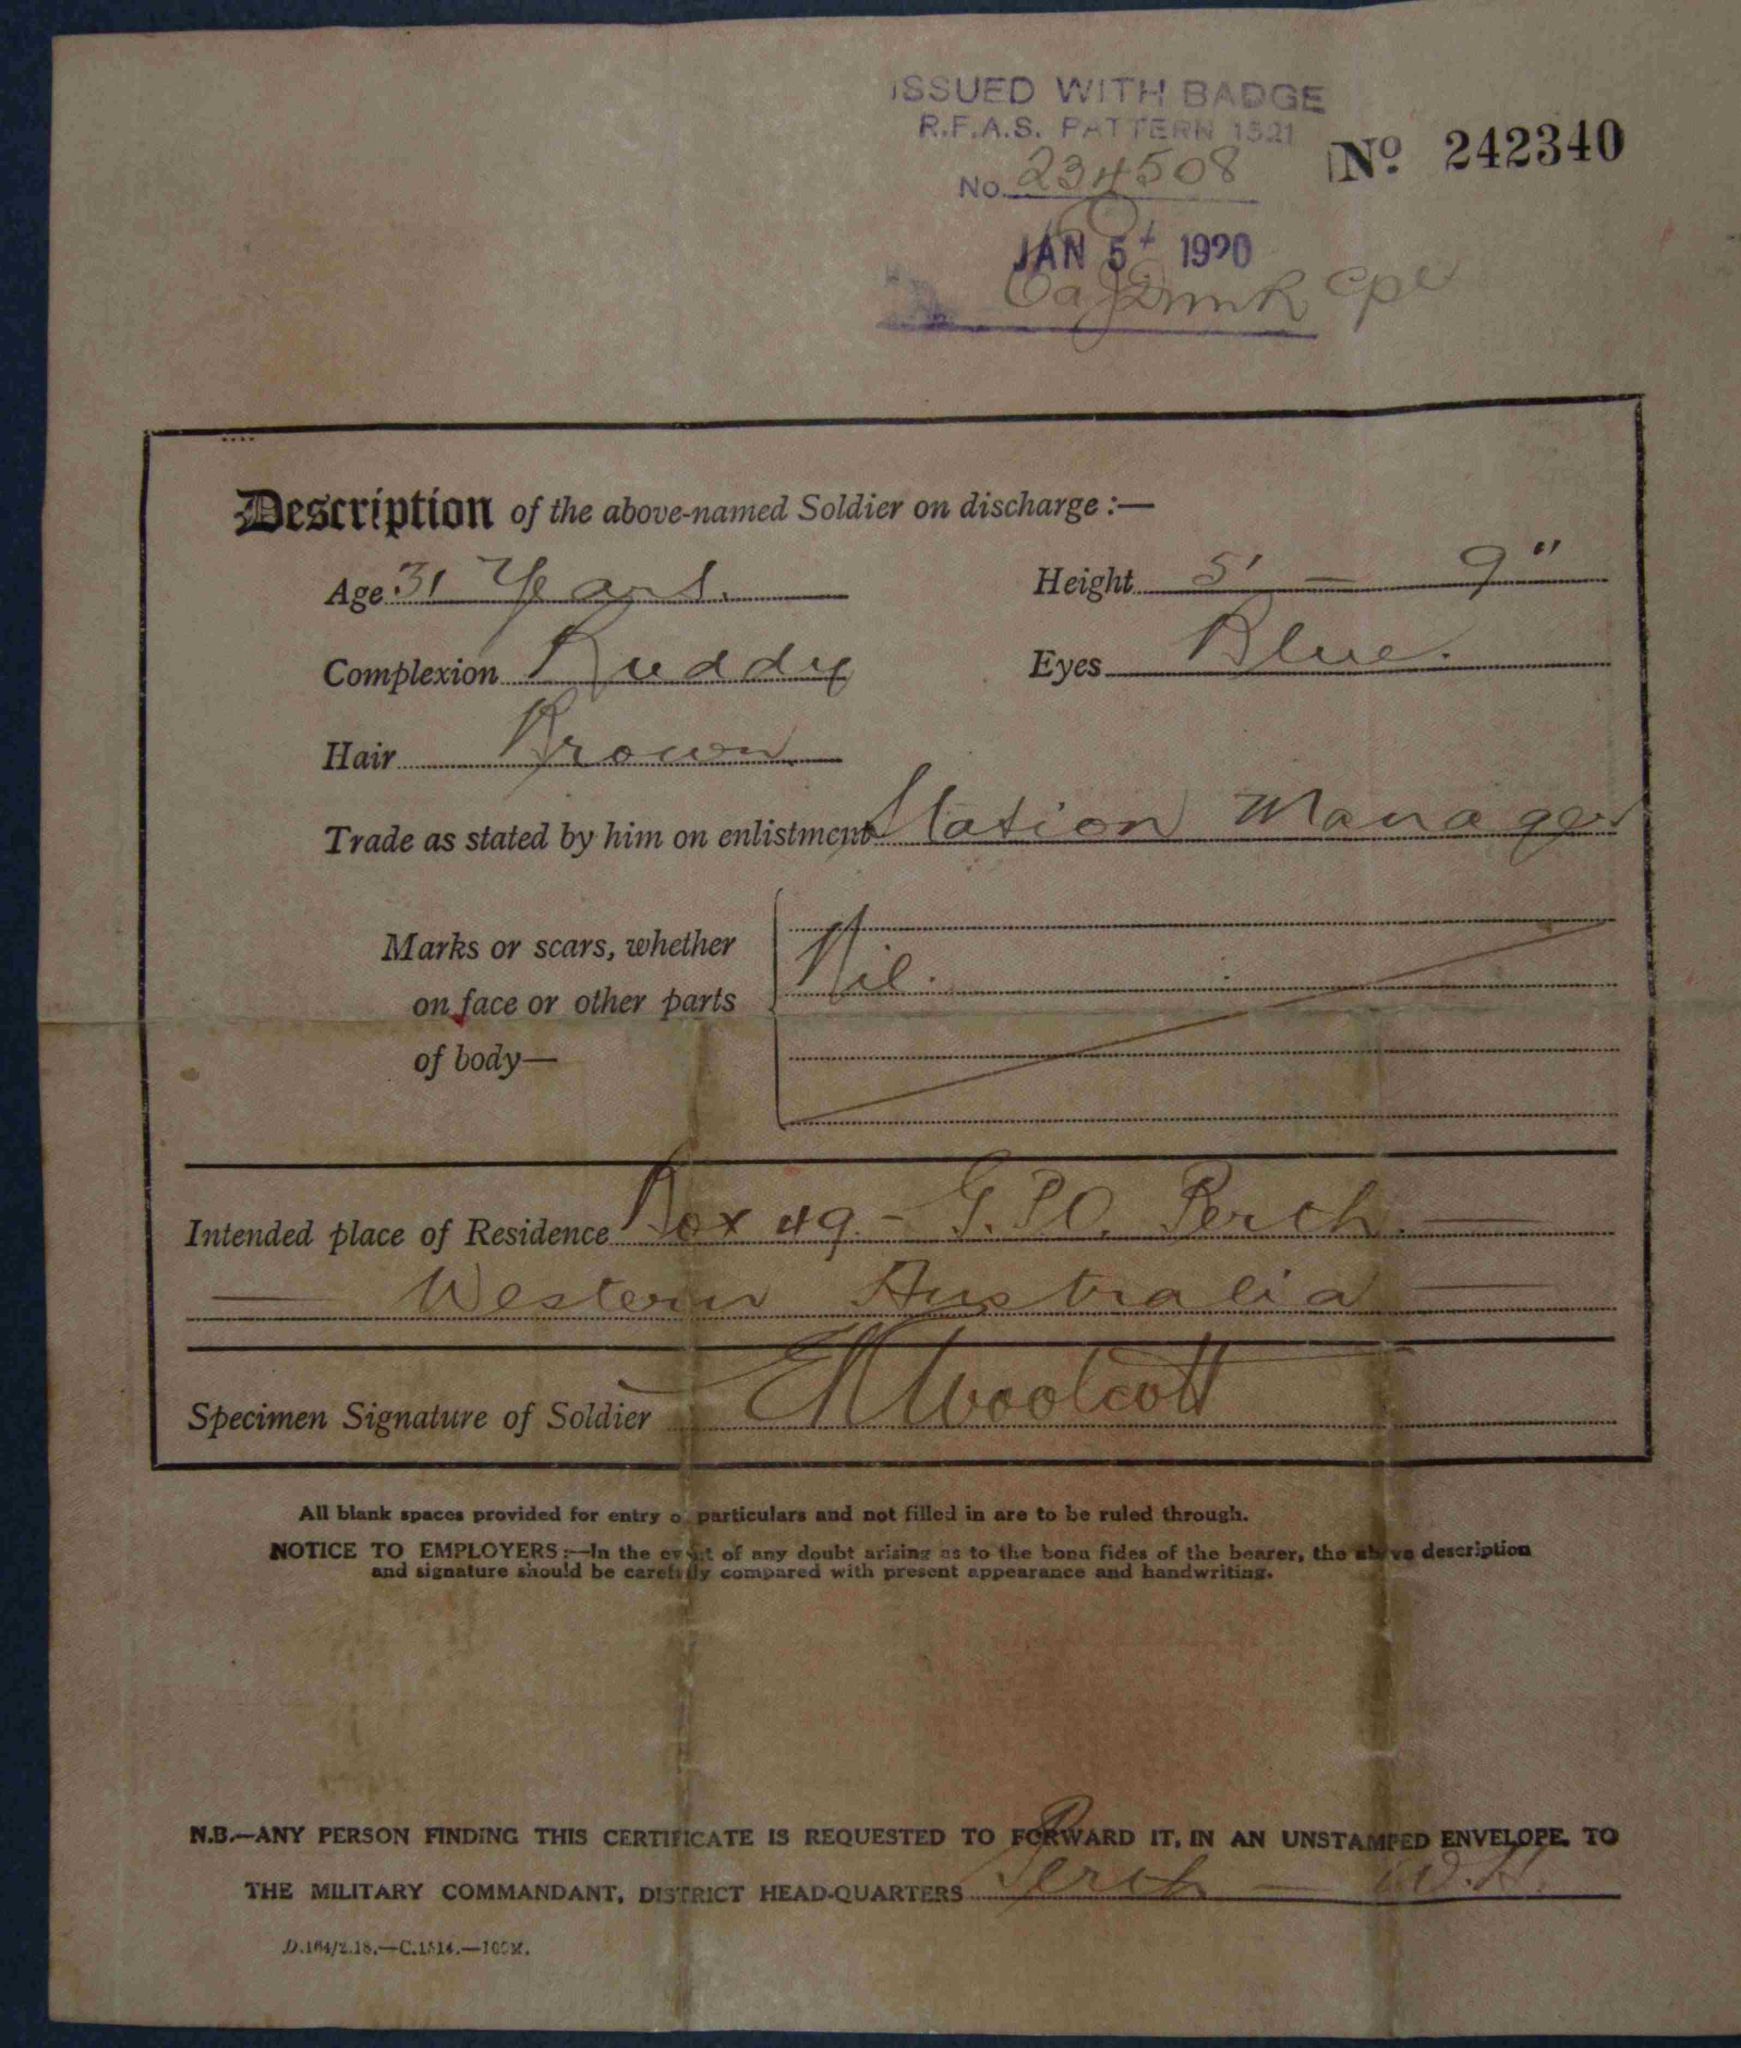 ISSUED WITH BADGE
R.F.A.S. PATTERN 1521
No. 234508
No. 242340
JAN 5 1920
Cpl
Description of the above-named Soldier on discharge :—
Age 31 Years. Height 5' — 9"
Complexion Ruddy Eyes Blue.
Hair Brown
Trade as stated by him on enlistment Station Manager
Marks or scars, whether
on face or other parts Nil.
of body—
Intended place of Residence Box 49. - G.P.O. Perth. —
— Western Australia —
Specimen Signature of Soldier Woolcott
All blank spaces provided for entry of particulars and not filled in are to be ruled through.
NOTICE TO EMPLOYERS:—In the event of any doubt arising as to the bona fides of the bearer, the above description
and signature should be carefully compared with present appearance and handwriting.
N.B.—ANY PERSON FINDING THIS CERTIFICATE IS REQUESTED TO FORWARD IT, IN AN UNSTAMPED ENVELOPE, TO
THE MILITARY COMMANDANT, DISTRICT HEAD-QUARTERS Perth — W.A.
D.164/2.18.—C.1514.—100M.